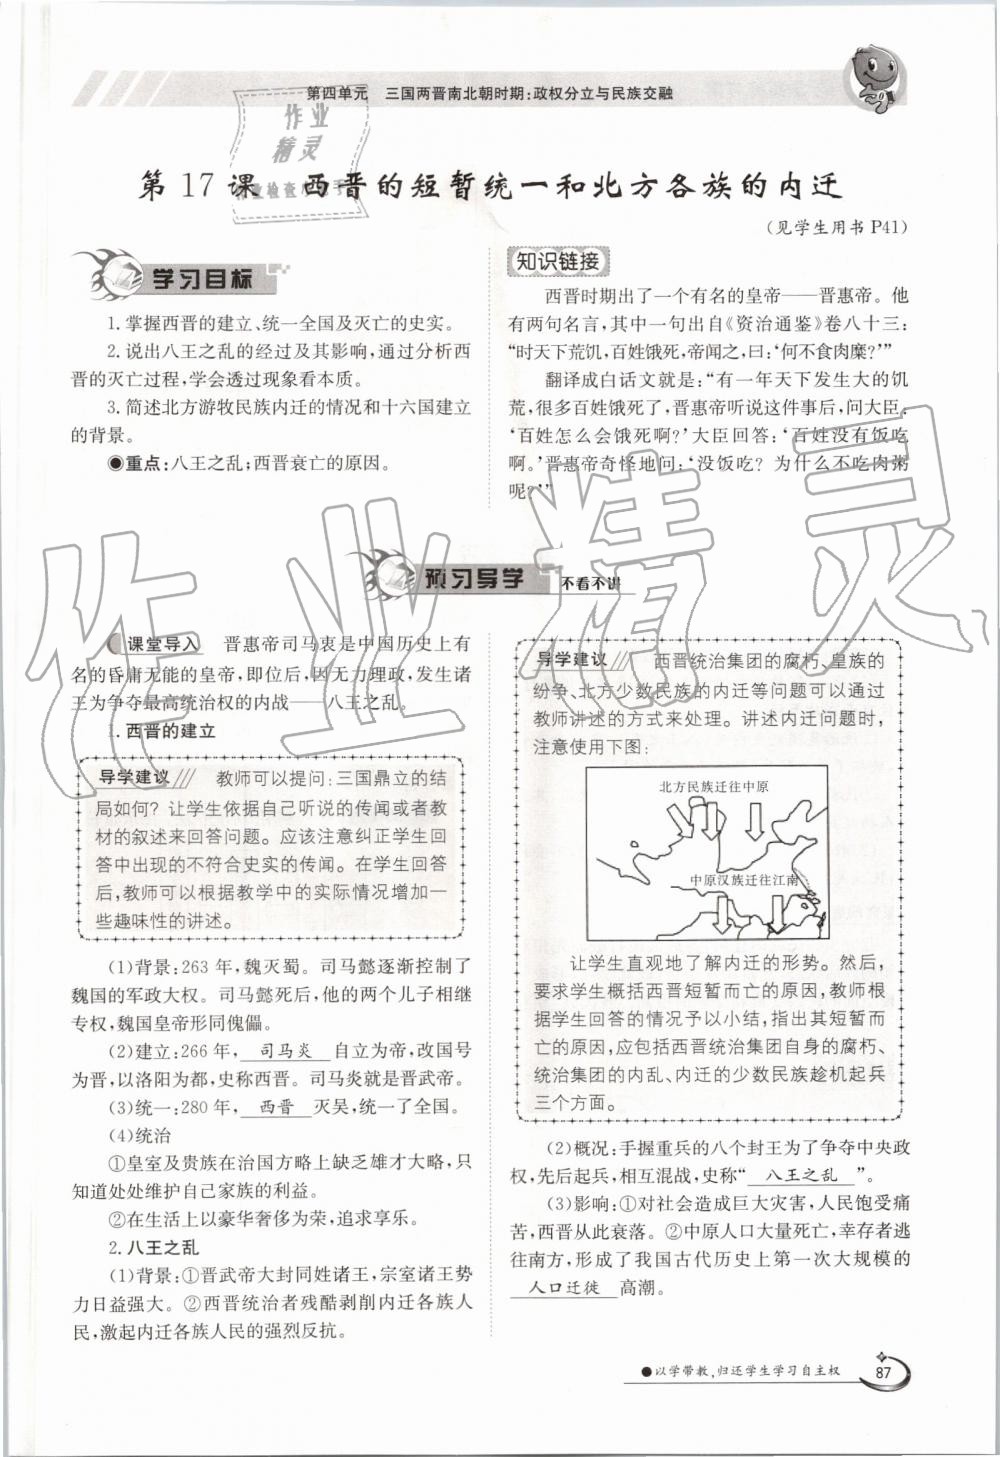 第四单元 三国两晋南北朝时期:政权分立与民族交融
作业
精灵
作业检查小助手
第 17 课 西晋的短暂统一和北方各族的内迁
(见学生用书 P41)
学习目标
1. 掌握西晋的建立、统一全国及灭亡的史实。
2. 说出八王之乱的经过及其影响,通过分析西
晋的灭亡过程,学会透过现象看本质。
3. 简述北方游牧民族内迁的情况和十六国建立
的背景。
●重点:八王之乱;西晋衰亡的原因。
知识链接
西晋时期出了一个有名的皇帝——晋惠帝。他
有两句名言,其中一句出自《资治通鉴》卷八十三:
“时天下荒饥,百姓饿死,帝闻之,曰:‘何不食肉糜?’”
翻译成白话文就是:“有一年天下发生大的饥
荒,很多百姓饿死了,晋惠帝听说这件事后,问大臣:
‘百姓怎么会饿死啊?’大臣回答:‘百姓没有饭吃
啊。’晋惠帝奇怪地问:‘没饭吃? 为什么不吃肉粥
呢?’”
作业精灵
预习导学 不看不讲
课堂导入 晋惠帝司马衷是中国历史上有
名的昏庸无能的皇帝,即位后,因无力理政,发生诸
王为争夺最高统治权的内战——八王之乱。
1. 西晋的建立
导学建议 教师可以提问:三国鼎立的结
局如何? 让学生依据自己听说的传闻或者教
材的叙述来回答问题。应该注意纠正学生回
答中出现的不符合史实的传闻。在学生回答
后,教师可以根据教学中的实际情况增加一
些趣味性的讲述。
(1)背景:263 年,魏灭蜀。司马懿逐渐控制了
魏国的军政大权。司马懿死后,他的两个儿子相继
专权,魏国皇帝形同傀儡。
(2)建立:266 年, 司马炎 自立为帝,改国号
为晋,以洛阳为都,史称西晋。司马炎就是晋武帝。
(3)统一:280 年, 西晋 灭吴,统一了全国。
(4)统治
①皇室及贵族在治国方略上缺乏雄才大略,只
知道处处维护自己家族的利益。
②在生活上以豪华奢侈为荣,追求享乐。
2. 八王之乱
(1)背景:①晋武帝大封同姓诸王,宗室诸王势
力日益强大。②西晋统治者残酷剥削内迁各族人
民,激起内迁各族人民的强烈反抗。
导学建议 西晋统治集团的腐朽、皇族的
纷争、北方少数民族的内迁等问题可以通过
教师讲述的方式来处理。讲述内迁问题时,
注意使用下图:
北方民族迁往中原
中原汉族迁往江南
让学生直观地了解内迁的形势。然后,
要求学生概括西晋短暂而亡的原因,教师根
据学生回答的情况予以小结,指出其短暂而
亡的原因,应包括西晋统治集团自身的腐朽、
统治集团的内乱、内迁的少数民族趁机起兵
三个方面。
(2)概况:手握重兵的八个封王为了争夺中央政
权,先后起兵,相互混战,史称“ 八王之乱 ”。
(3)影响:①对社会造成巨大灾害,人民饱受痛
苦,西晋从此衰落。②中原人口大量死亡,幸存者逃
往南方,形成了我国古代历史上第一次大规模的
人口迁徙 高潮。
●以学带教,归还学生学习自主权
87